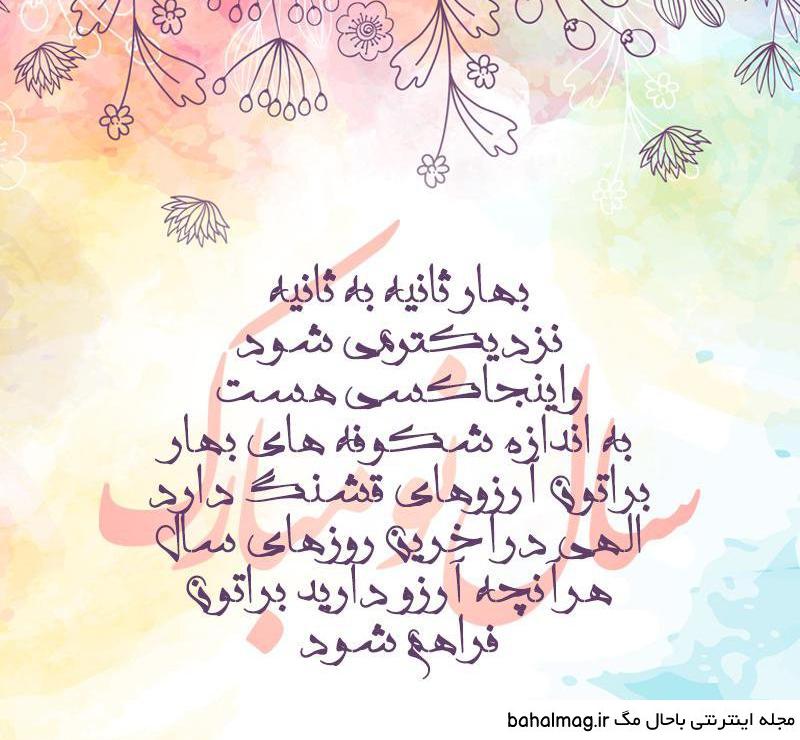 بهار ثانیه به ثانیه
نزدیکترمی شود
واینجاکسی هست
به اندازه شکوفه های بهار
براتون آرزوهای قشنگ دارد
الهی درآخرین روزهای سال
هرآنچه آرزو دارید براتون
فراهم شود
سال نو مبارک
مجله اینترنتی باحال مگ bahalmag.ir